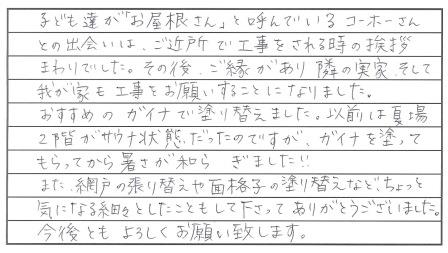 子ども達が「お屋根さん」と呼んでいるコーホーさん
との出会いは、ご近所で工事をされる時の挨拶
まわりでした。その後、ご縁があり隣の実家、そして
我が家も工事をお願いすることになりました。
おすすめのガイナで塗り替えました。以前は夏場
2階がサウナ状態だったのですが、ガイナを塗って
もらってから暑さが和らぎました!!
また、網戸の張り替えや面格子の塗り替えなど、ちょっと
気になる細々としたこともして下さってありがとうございました。
今後ともよろしくお願い致します。